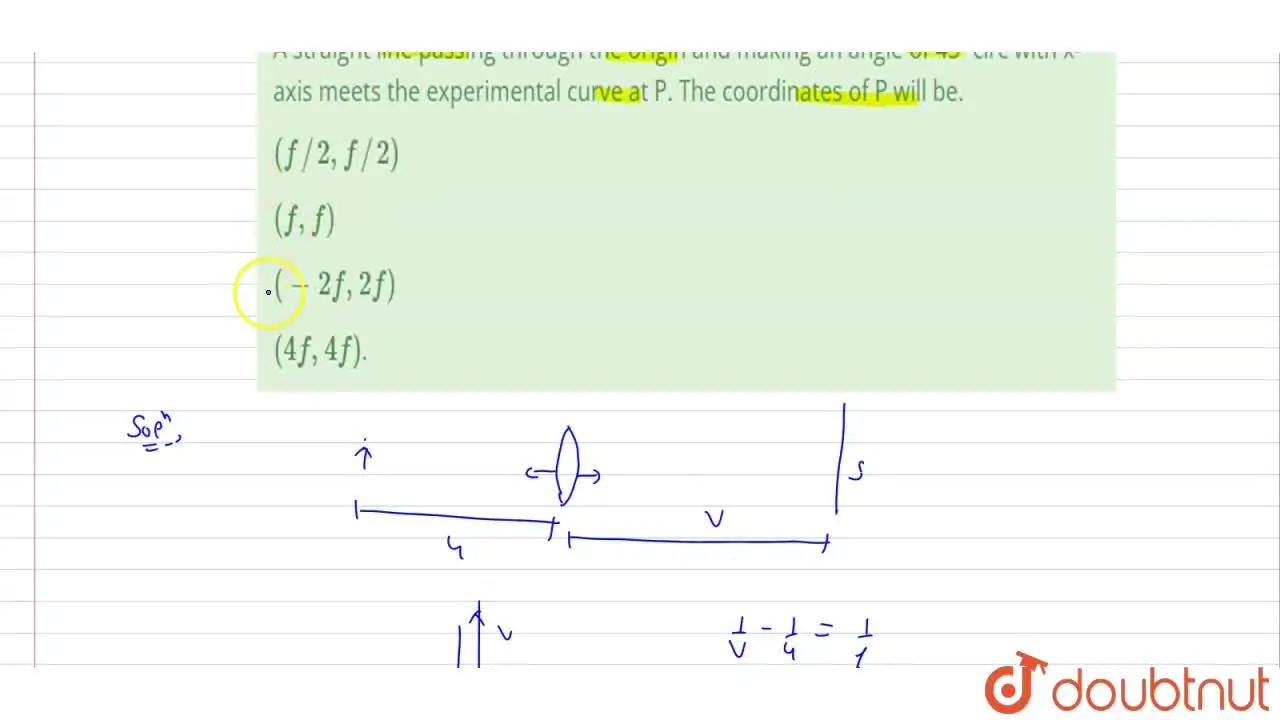 A straight line passing through the origin and making an angle of 45° circ with x-
axis meets the experimental curve at P. The coordinates of P will be.
(f/2, f/2)
(f, f)
(− 2f, 2f)
(4f, 4f).
Solⁿ,
S
u
v
v
1/v − 1/u = 1/f
doubtnut